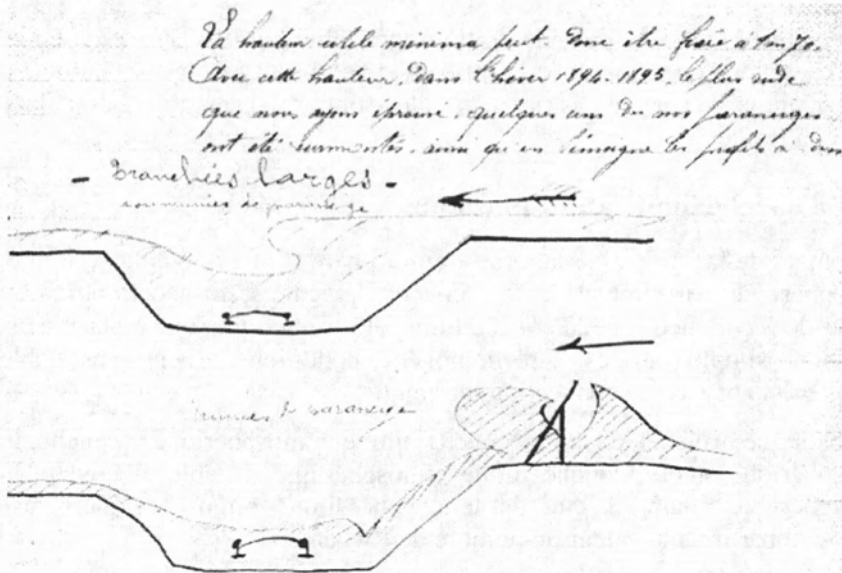 La hauteur utile minima peut donc être fixée à 1m70.
Avec cette hauteur, dans l'hiver 1894-1895, le plus rude
que nous ayons éprouvé, quelques uns de nos paraneiges
ont été surmontés, ainsi qu'en témoigne les profils ci dess
- Tranchées larges -
non munies de paraneige
munies de paraneige